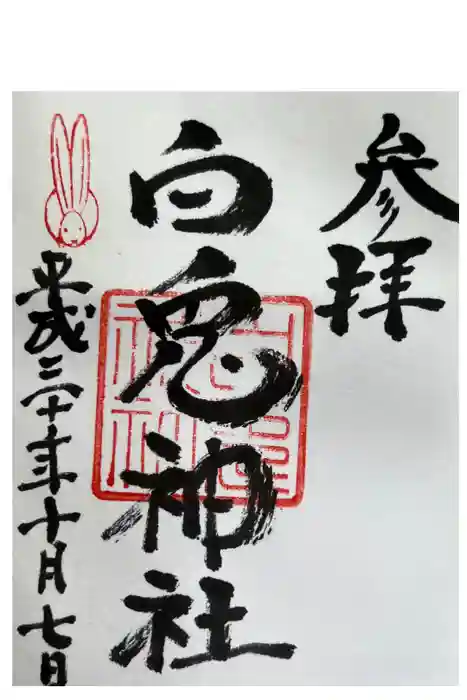 参拝
白兎神社
平成三十年十月七日